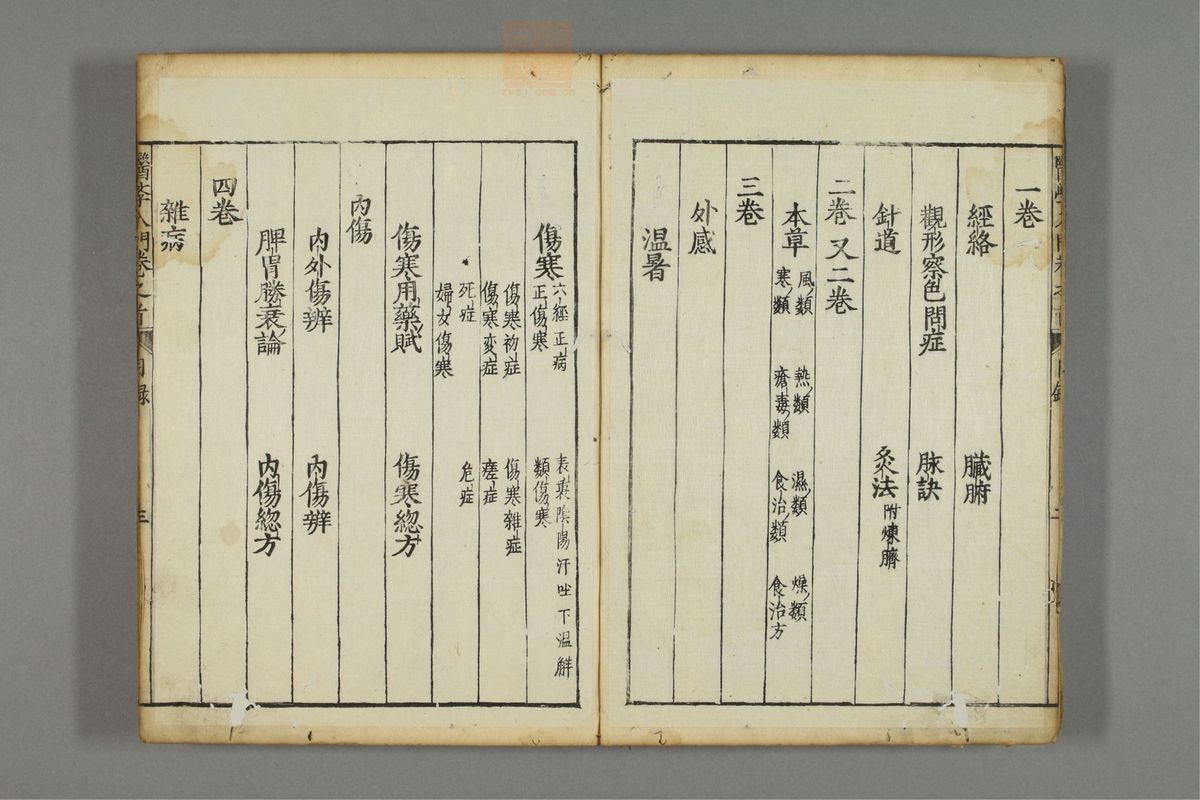 一巻
經絡 臓腑
觀形察色問症 脉訣
針道 灸法 附煉臍
二巻 又二巻
本草 風類 熱類 濕類 燥類
寒類 瘡毒類 食治類 食治方
三巻
外感
温暑
傷寒 六經正病 表裏陰陽汗吐下温解
正傷寒 類傷寒
傷寒初症 傷寒雜症
傷寒変症 瘥症
死症 危症
婦女傷寒
傷寒用藥賦 傷寒総方
内傷
内外傷辨 内傷辨
脾胃勝衰論 内傷総方
四巻
雜病
醫学入門巻之首 目録 三